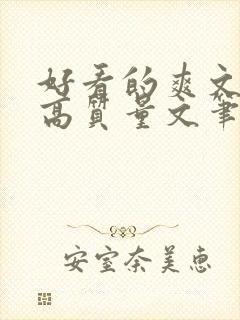 好看的爽文
高質量文筆
安室奈美惠